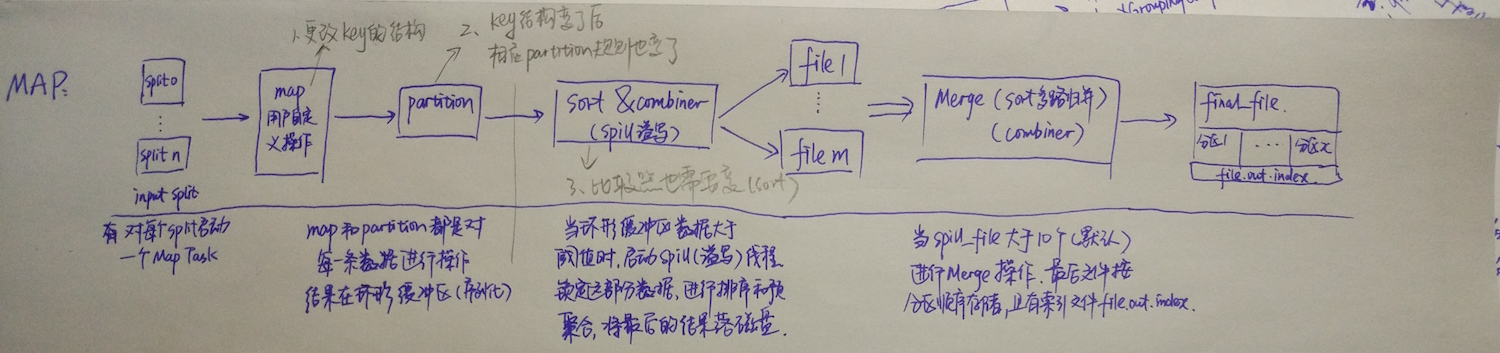 xGrouping
1.更改key的结构
2、key结构变了后
相应partition规则也变了
MAP:
split0
⋮
split n
input split
map
用户自定
义操作
partition
sort &combiner
(spill溢写)
3、比较器也需要变(sort)
file1
⋮
file m
Merge (sort多路归并)
(combiner)
final_file.
分区1 ... 分区x
file.out.index
有 对每个split启动
一个Map Task
map和partition都是对
每一条数据进行操作
结果在环形缓冲区(序列化)
当环形缓冲区数据大于
阈值时,启动spill(溢写)线程
锁定这部分数据,进行排序和预
聚合,将最后的结果落磁盘.
当spill_file大于10个(默认)
进行Merge操作.最后文件按
分区顺序存储,且有索引文件file.out.index.